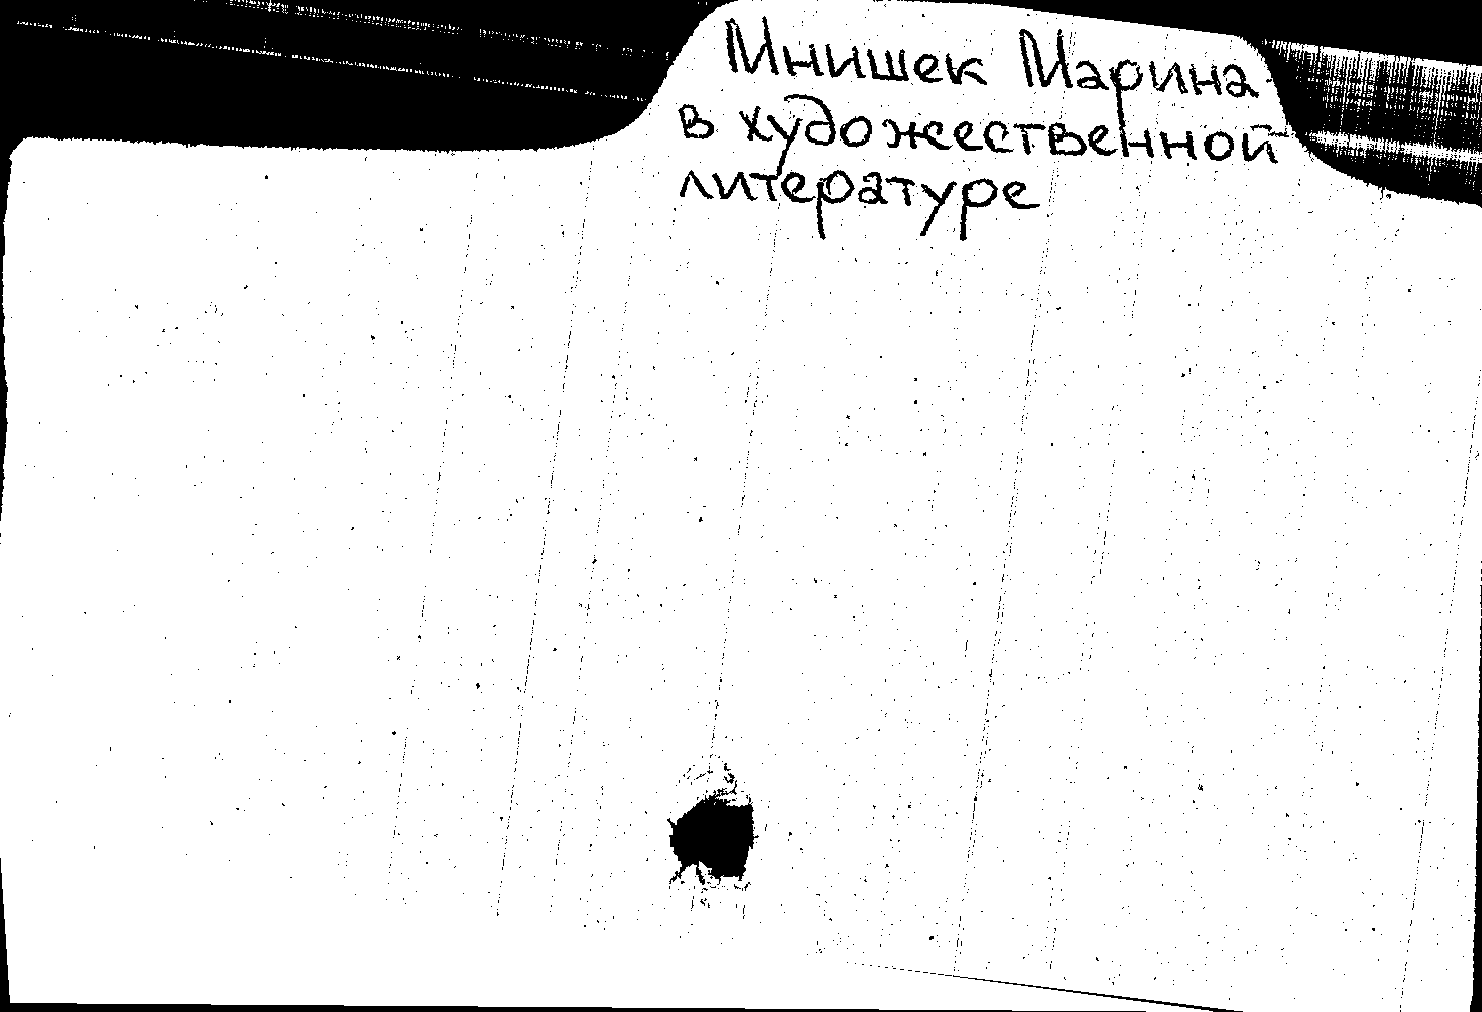 Мнишек Марина
в художественной
литературе